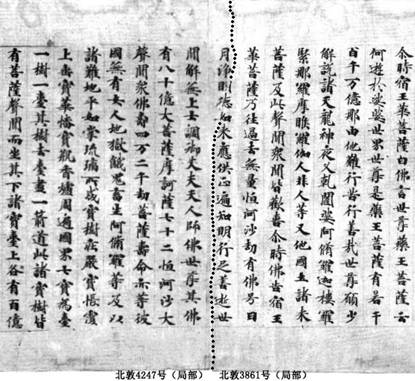 尒時宿王華菩薩白佛言世尊藥王菩薩云
何遊於娑婆世界世尊是藥王菩薩有若干
百千万億那由他難行苦行善哉世尊願少
解說諸天龍神夜叉乾闥婆阿脩羅迦樓羅
緊那羅摩睺羅伽人非人等又他國土諸來
菩薩及此聲聞衆聞皆歡喜尒時佛告宿王
華菩薩乃往過去無量恒河沙劫有佛号日
月淨明德如來應供正遍知明行足善逝世
間解無上士調御丈夫天人師佛世尊其佛
有八十億大菩薩摩訶薩七十二恒河沙大
聲聞衆佛壽四万二千劫菩薩壽命亦等彼
國無有女人地獄餓鬼畜生阿脩羅等及以
諸難地平如掌琉璃所成寶樹莊嚴寶帳覆
上垂寶華幡寶香爐周遍國界七寶爲臺
一樹一臺其樹去臺盡一箭道此諸寶樹皆
有菩薩聲聞而坐其下諸寶臺上各有百億
北敦4247号（局部）
北敦3861号（局部）